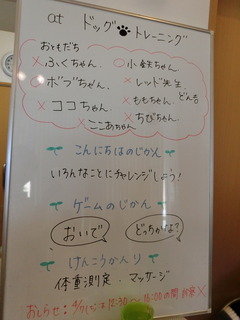 at ドッグ トレーニング
おともだち
×ふくちゃん ○小鉄ちゃん
○ボブちゃん ×レッド先生
×ココちゃん ×ももちゃん どん吉
×ちびちゃん
×ここあちゃん
こんにちはのじかん
いろんなことにチャレンジしよう!
ゲームのじかん
おいで どっちかは?
けんこうかんり
体重測定・マッサージ
おしらせ:
12:30〜16:00の間